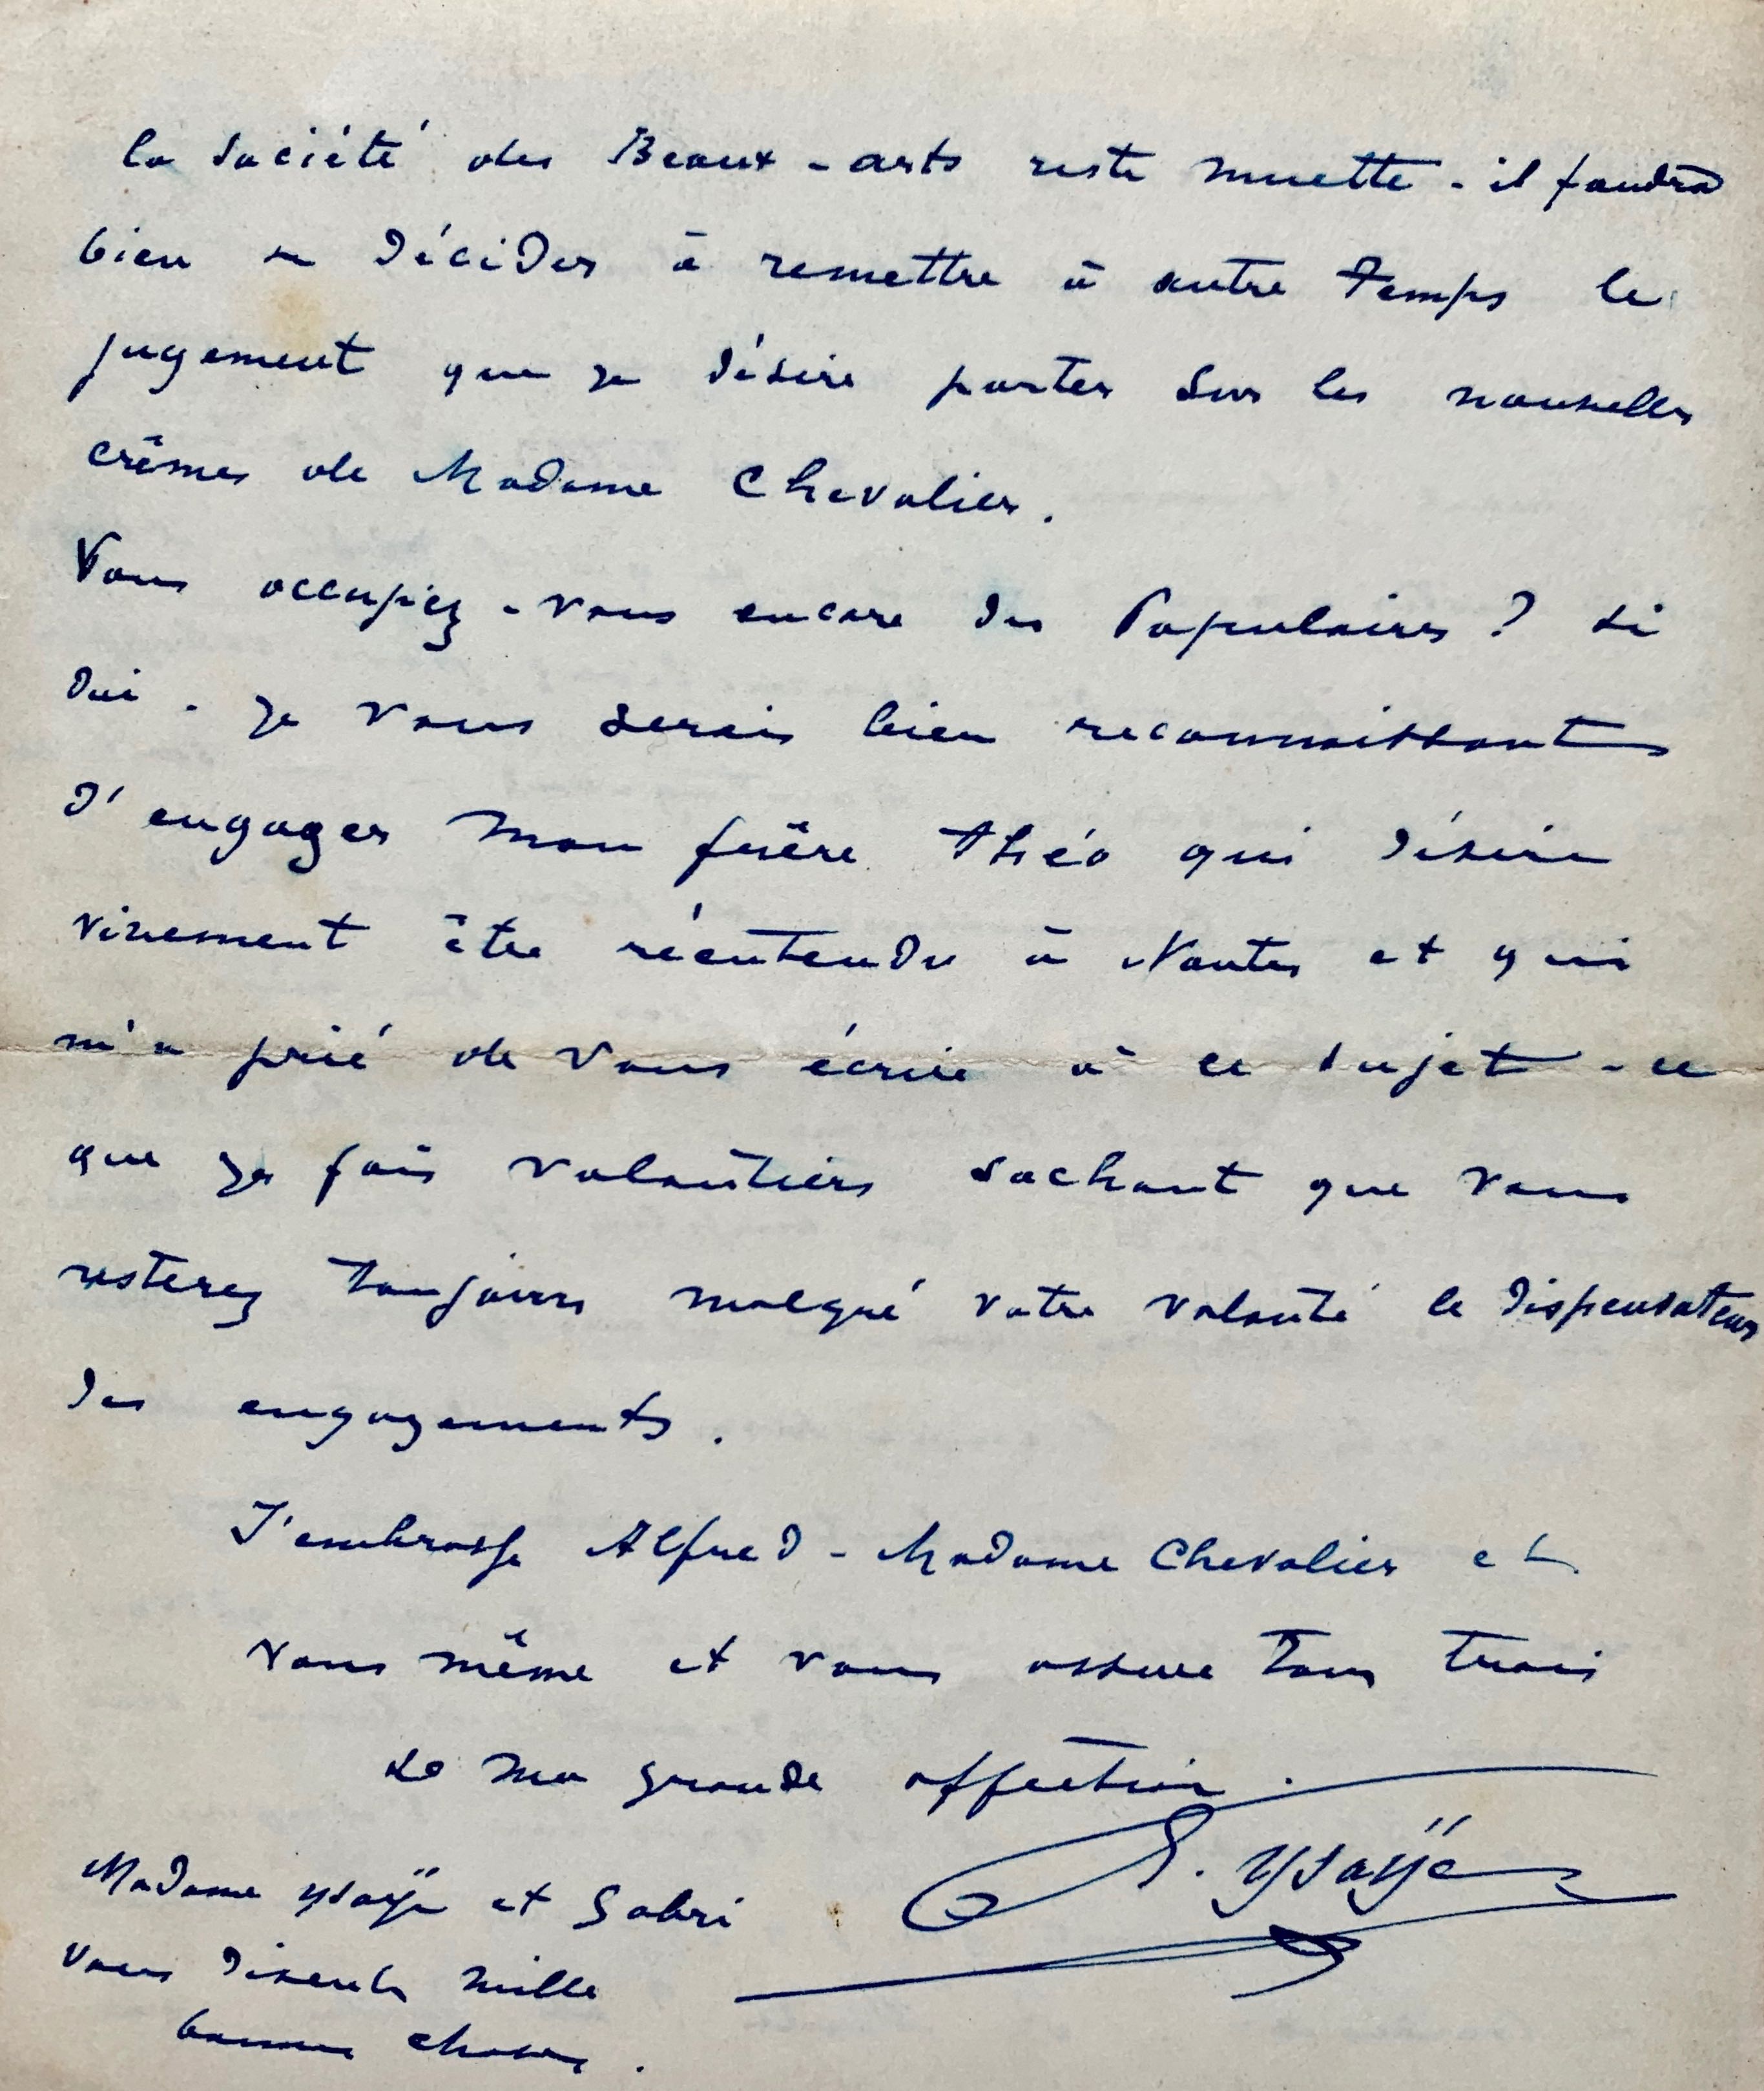 la Société des Beaux-arts reste muette - il faudra
bien se décider à remettre à autre temps le
jugement que je désire porter sur les nouvelles
crêmes de Madame Chevalier.
Vous occupiez-vous encore des Populaires ? Si
oui - je vous serais bien reconnaissant
d'engager mon frère Théo qui désire
vivement être réentendu à Nantes et qui
m'a prié de vous écrire à ce sujet - ce
que je fais volontiers sachant que vous
resterez toujours malgré votre volonté le dispensateur
des engagements.
J'embrasse Alfred - Madame Chevalier et
vous même et vous assure tous trois
de ma grande affection.
E. Ysaÿe
Madame Ysaÿe et Gabri
vous disent mille
bonnes choses.